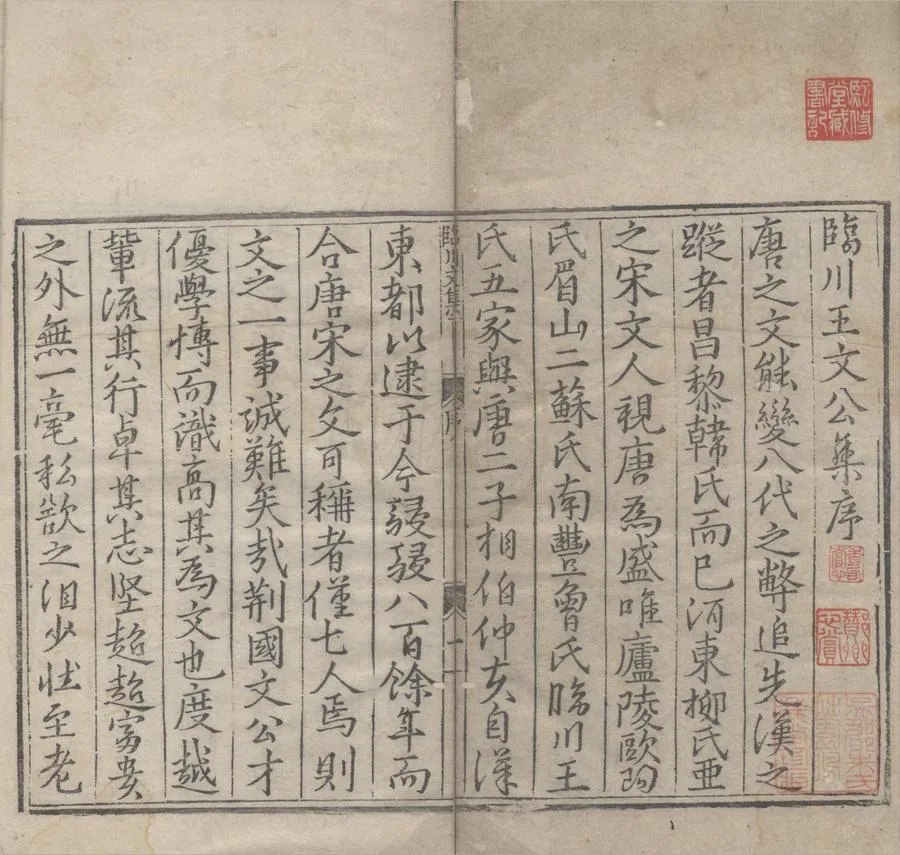 堂藏
書記
臨川王文公集序
唐之文能變八代之弊追先漢之
蹤者昌黎韓氏而已河東柳氏亞
之宋文人視唐為盛唯廬陵歐陽
氏眉山二蘇氏南豐曾氏臨川王
氏五家與唐二子相伯仲夫自漢
臨川文集
序
一
東都以逮于今駸駸八百餘年而
合唐宋之文可稱者僅七人焉則
文之一事誠難矣哉荊國文公才
優學博而識高其為文也度越
輩流其行卓其志堅超超富貴
之外無一毫私欲之汩少壯至老